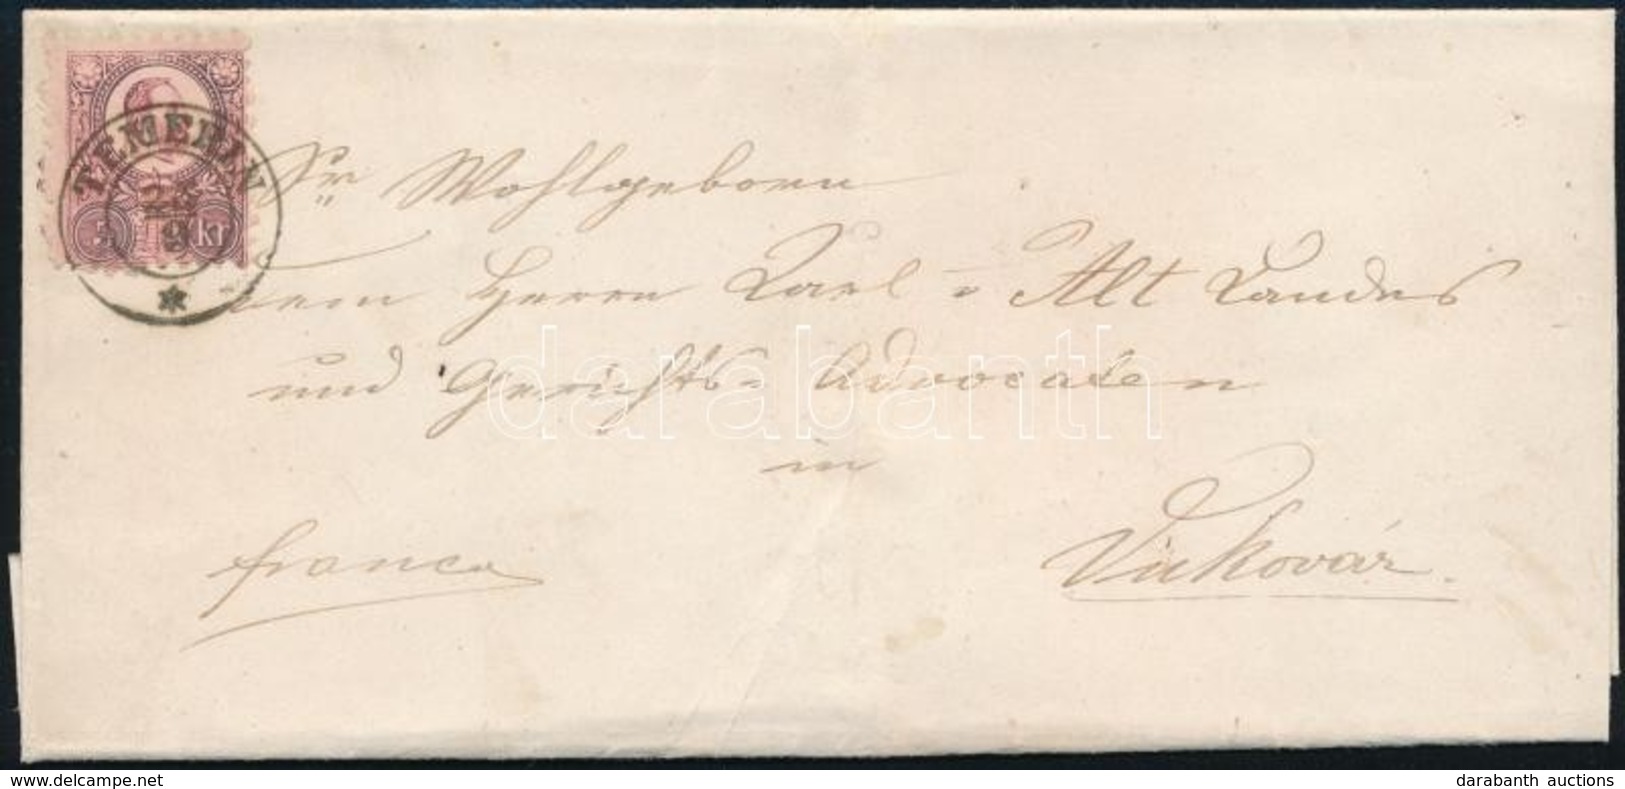 TEMERIN
25
9
5 kr
Sr Wohlgeboren
dem Herrn Karl = Alt Landes
und Gerichts= Advocaten
in
franco
Vukovár.
darabanth
www.delcampe.net
darabanth auctions